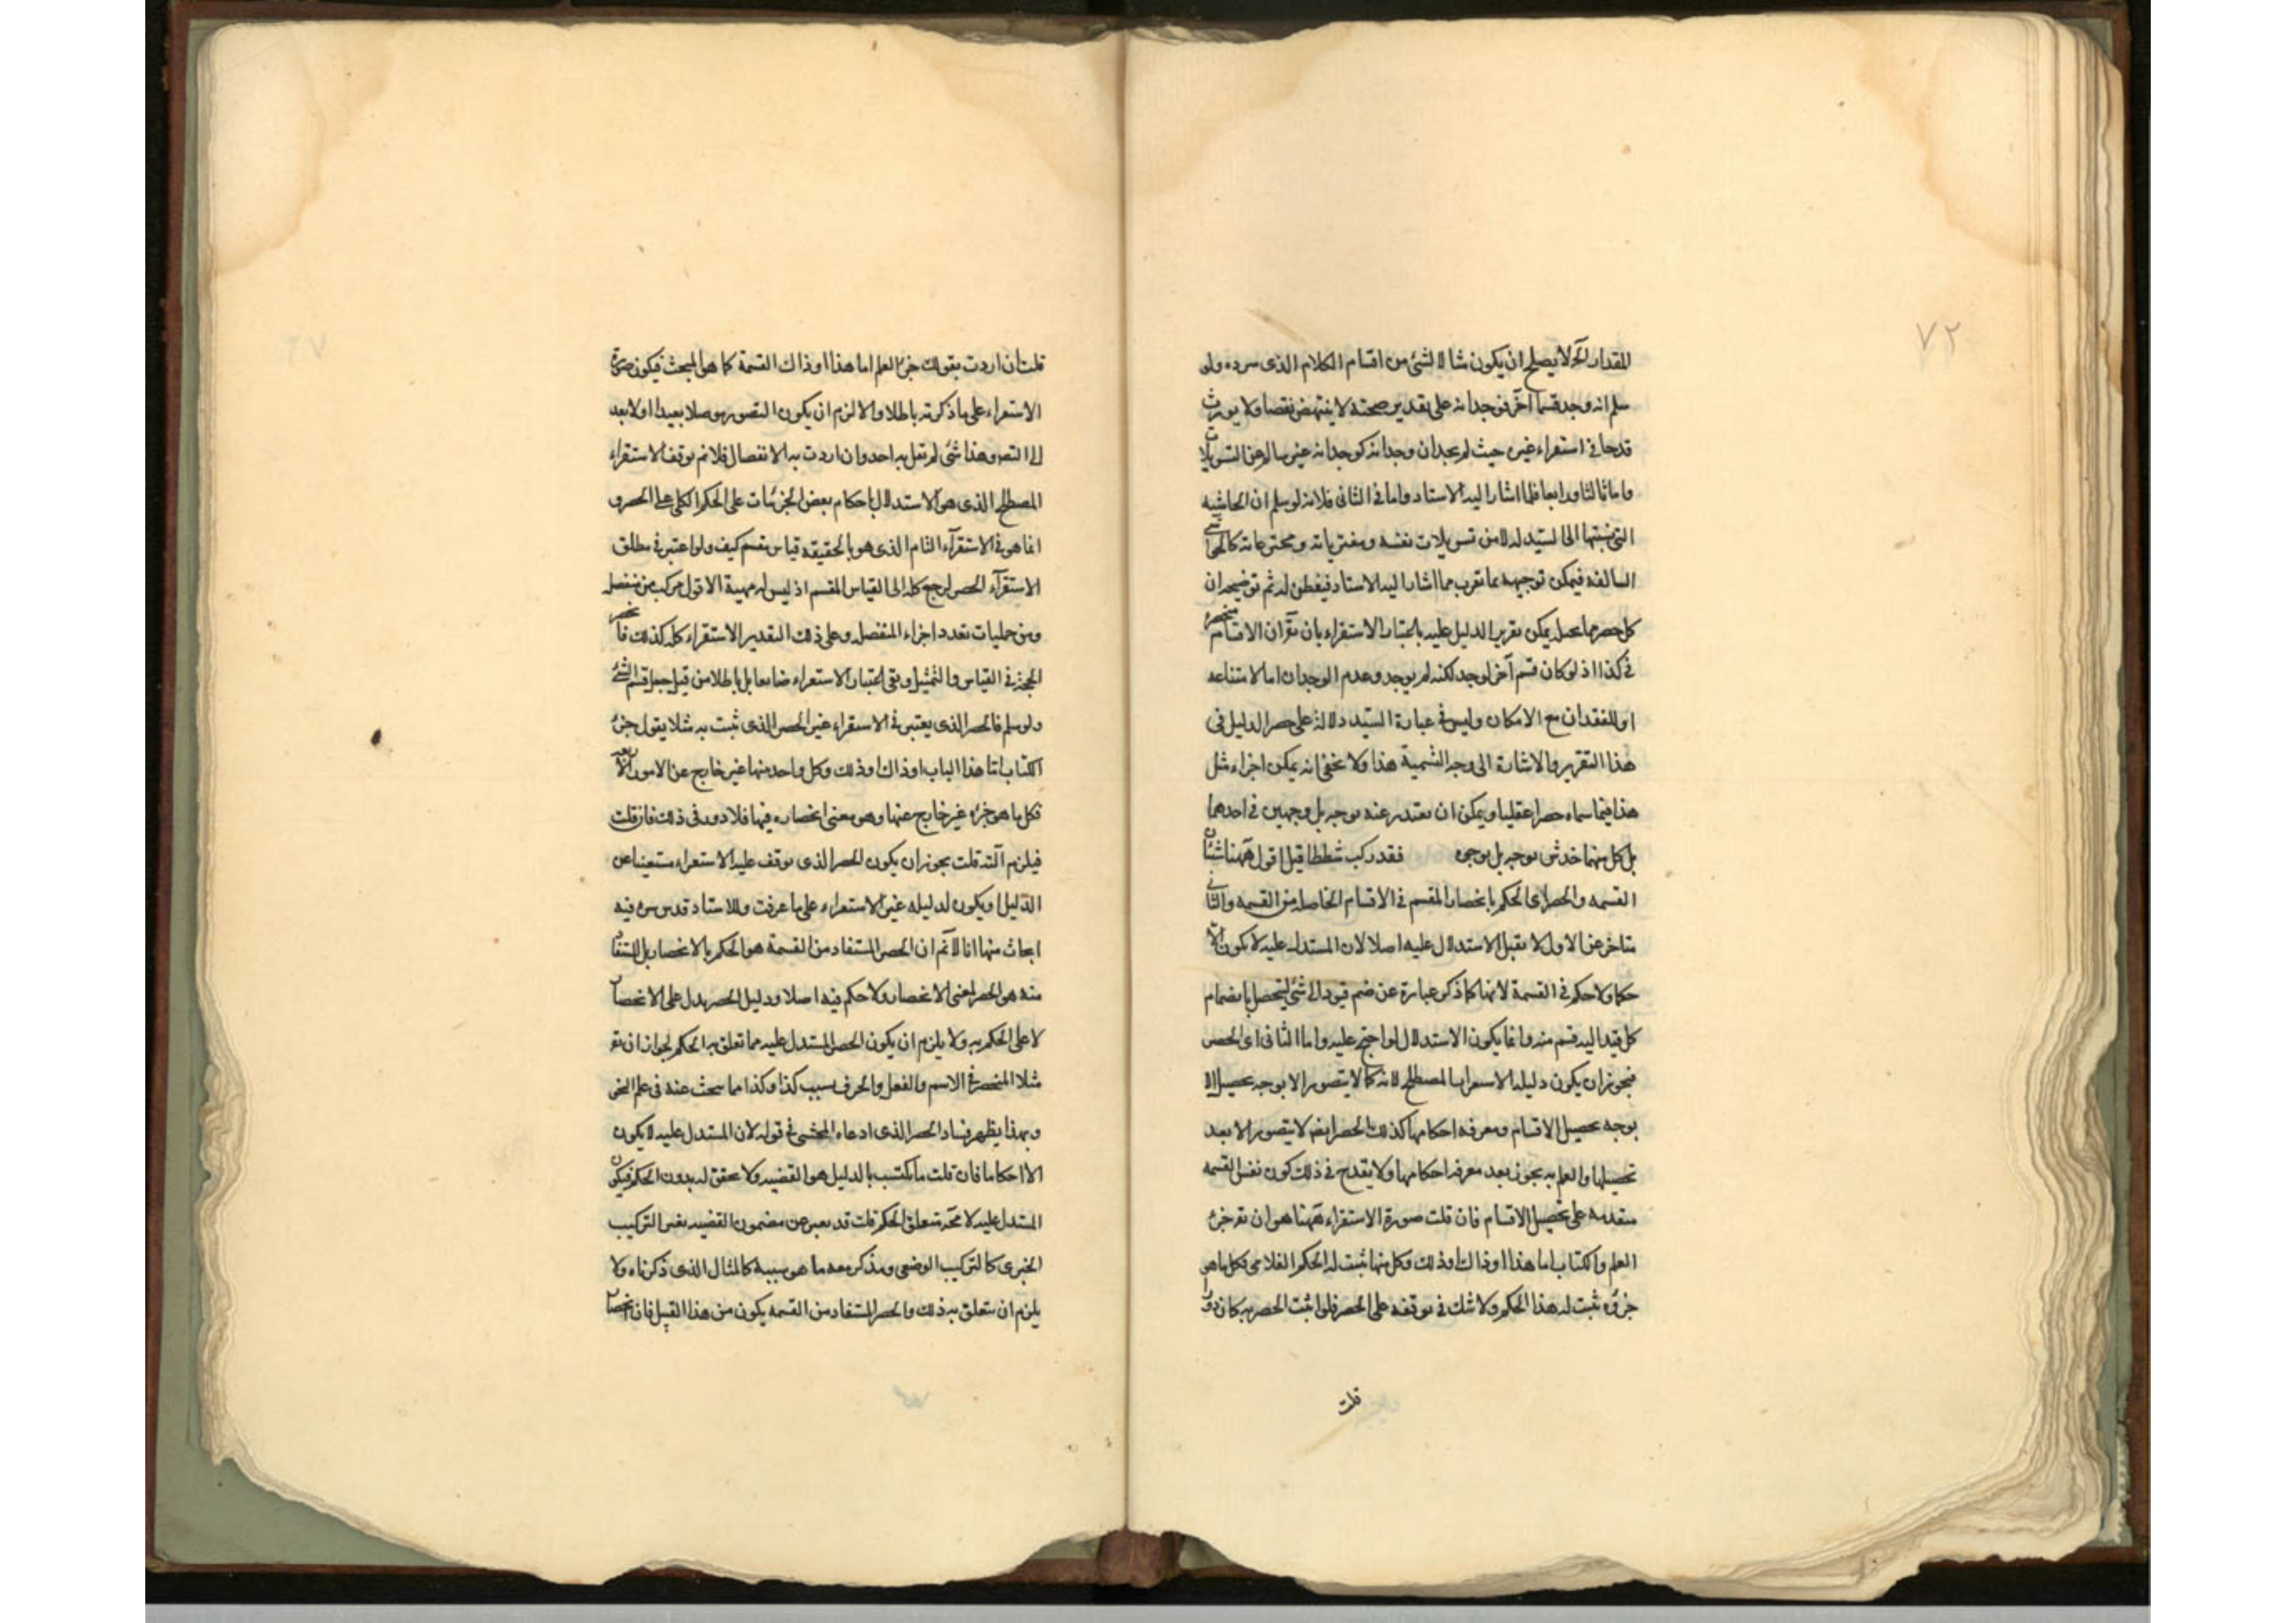 ٧٢
المقدار لآخر لا يصلح ان يكون مثالا لشئ من اقسام الكلام الذى سرده ولو
سلم انه وجد قسما آخر فوجدانه على تقدير صحته لا ينتهض نقضا ولا يورث
قدحا فى استقراء غيره حيث لم يجد ان وجدانه كوجدانه غير سالم عن
واما ثالثا ورابعا فلما اشار اليه الاستاد واما فى الثانى فلانه لو سلم ان الحاشيه
التى نسبتها الى السيد له لا من تسويلات نفسه ومفترياته ومخترعاته
السالفة فيمكن توجيهه بما يقرب مما اشار اليه الاستاد فيفطن له ثم توضيحه ان
كل حصر يمكن تقرير الدليل عليه باعتبار الاستقراء بان يقر ان الاقسام منحصرة
فى كذا اذ لو كان قسم آخر لوجد لكنه لم يوجد وعدم الوجدان اما لامتناعه
او للفقدان مع الامكان وليس فى عبارة السيد دلالة على حصر الدليل فى
هذا التقرير والاشارة الى وجه التسمية هذا ولا يخفى انه يمكن اجراء مثل
هذا فيما سماه حصرا عقليا ويمكن ان يعتذر عنه بوجه بل وجهين فى احدهما
بل كل منهما خدش بوجه بل بوجوه فقد ركب شططا قيل اقول ههنا شيئان
القسمه والحصر اى الحكم بانحصار المقسم فى الاقسام الحاصله من القسمه والثانى
متاخر عن الاول لا يقبل الاستدلال عليه اصلا لان المستدل عليه لا يكون الا
حكما ولا حكم فى القسمة لانها كما ذكر عبارة عن ضم قيود الى شئ ليتحصل بانضمام
كل قيد اليه قسم منه وانما يكون الاستدلال لو احتج عليه واما الثانى اى الحصر
فيجوز ان يكون دليله الاستقراء المصطلح لانه كما لا يتصور الا بوجه تحصيل الا
بوجه تحصيل الاقسام ومعرفه احكامها كذلك الحصر ايضا لا يتصور الا بعد
تحصيلها والعلم به يجوز بعد معرفه احكامها ولا يقدح فى ذلك كون نفس القسمه
متقدمه على تحصيل الاقسام فان قلت صورة الاستقراء ههنا هو ان يقر جزء
العلم والكتاب اما هذا او ذاك او ذلك وكل منها ثبت له الحكم الفلانى فكل ما هو
جزؤه ثبت له هذا الحكم ولا شك فى توقفه على الحصر فلو اثبت الحصر به كان دورا
قلت
قلت ان اردت بقولك جزء العلم اما هذا او ذاك القسمة كما هو المبحث فيكون
الاستقراء على ما ذكرته باطلا والا لزم ان يكون التصور موصلا بعيدا او لا بعد
الى التصو وهذا شئ لم يقل به احد وان اردت به الانفصال فلا نم توقف الاستقراء
المصطلح الذى هو الاستدلال باحكام بعض الجزئيات على الحكم الكلى على الحصر و
انما هو فى الاستقرآء التام الذى هو بالحقيقه قياس مقسم كيف ولو اعتبر فى مطلق
الاستقرآء الحصر لرجع كله الى القياس المقسم اذ ليس له مهية الا قول مركب من منفصله
ومن حمليات بعدد اجزاء المنفصله وعلى ذلك التقدير الاستقراء كله كذلك فانحصر
الحجة فى القياس والتمثيل وبقى اعتبار الاستقراء ضايعا بل باطلا من قبيل جعل قسم الشئ
ولو سلم فالحصر الذى يعتبر فى الاستقراء غير الحصر الذى ثبت به مثلا يقول جزء
الكتاب اما هذا الباب او ذاك او ذلك وكل واحد منها غير خارج عن الامور الاربعه
فكل ما هو جزءه غير خارج عنها وهو معنى انحصاره فيها فلا دور فى ذلك فان قلت
فيلزم التسه قلت يجوز ان يكون الحصر الذى توقف عليه الاستقراء مستغنيا عن
الدليل او يكون له دليل غير الاستقراء على ما عرفت وللاستاد قدس سره فيه
ابحاث منها انا لا نم ان الحصر المستفاد من القسمة هو الحكم بالانحصار بل المستفاد
منه هو الحصر بمعنى الانحصار ولا حكم فيه اصلا ودليل الحصر يدل على الانحصار
لا على الحكم به ولا يلزم ان يكون الحصر المستدل عليه مما تعلق به الحكم لجواز ان يقر
مثلا المنحصر فى الاسم والفعل والحرف بسبب كذا وكذا مما يبحث عنه فى علم النحو
وبهذا يظهر فساد الحصر الذى ادعاه المحشى فى قوله لان المستدل عليه لا يكون
الا احكاما فان قلت ما يكتسب بالدليل هو القضيه ولا تحقق له بدون الحكم فيكون
المستدل عليه لا محة متعلق الحكم قلت قد يعبر عن مضمون القضيه بغير التركيب
الخبرى كالتركيب الوضعى ويذكر معه ما هو سببه كالمثال الذى ذكرناه ولا
يلزم ان يتعلق به ذلك والحصر المستفاد من القسمه يكون من هذا القبيل فان انحصار